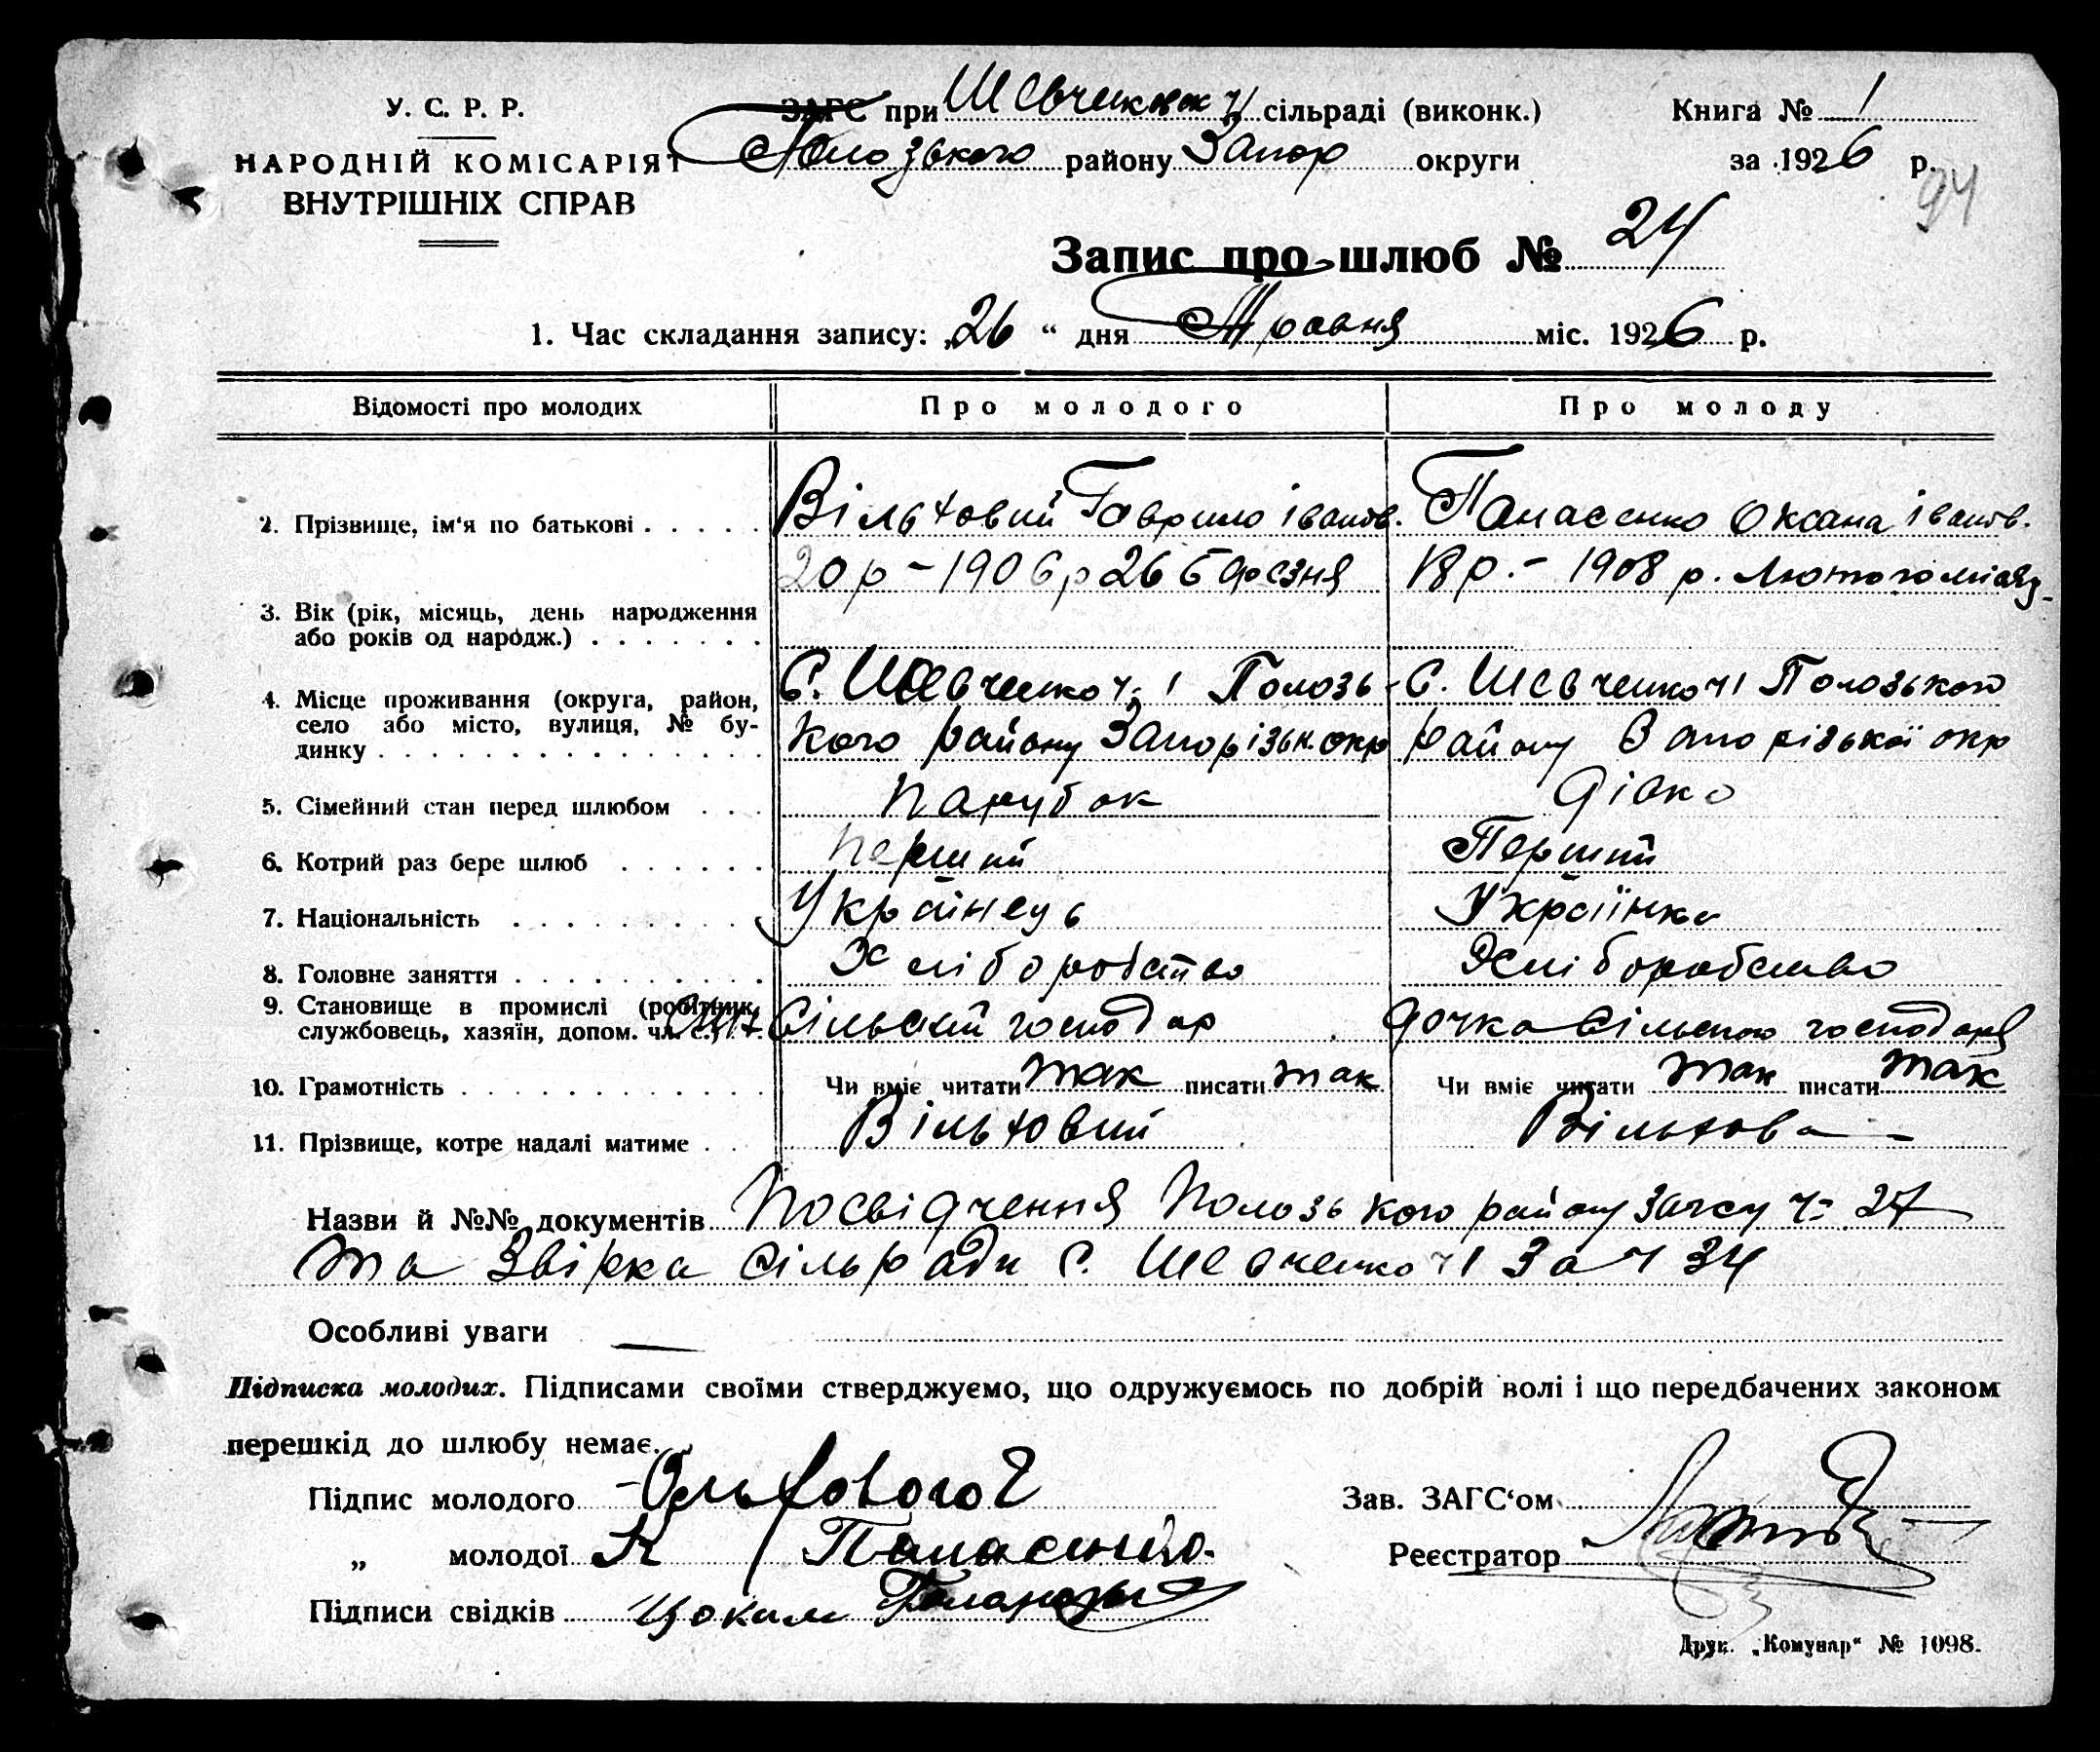 У. С. Р. Р.
НАРОДНІЙ КОМІСАРІЯТ
ВНУТРІШНІХ СПРАВ
ЗАГС при Шевченковск ч1 сільраді (виконк.)
Полозького району Запор округи
Книга № 1
за 1926 р.
94
Запис про шлюб № 24
1. Час складання запису: „26“ дня Травня міс. 1926 р.
Відомості про молодих Про молодого Про молоду
2. Прізвище, ім'я по батькові . . . . . Вільховий Гаврило Іванов. Панасенко Оксана Іванов.
20 р – 1906 р 26 Березня 18 р. – 1908 р. Лютого місяц
3. Вік (рік, місяць, день народження
або років од народж.) . . . . . . .
4. Місце проживання (округа, район, С. Шевченко ч. 1 Полозь- С. Шевченко ч1 Полозького
село або місто, вулиця, № бу- кого району Запорізьк. окр району Запорізької окр
динку . . . . . . . . . . . . . . .
5. Сімейний стан перед шлюбом . . . Парубок Дівка
6. Котрий раз бере шлюб . . . . . . Перший Перший
7. Національність . . . . . . . . . . Українець Українка
8. Головне заняття . . . . . . . . . . . Хліборобство Хліборобство
9. Становище в промислі (робітник,
службовець, хазяїн, допом. чл. с.) . . Сільский господар дочка сільского господаря
10. Грамотність . . . . . . . . . . . . . Чи вміє читати так писати так Чи вміє читати так писати так
11. Прізвище, котре надалі матиме . . Вільховий Вільхова
Назви й №№ документів Посвідчення Полозького району Загсу ч= 27
та Звірка сільради С. Шевченко ч1 За ч 34
Особливі уваги —
Підписка молодих. Підписами своїми стверджуємо, що одружуємось по добрій волі і що передбачених законом
перешкід до шлюбу немає.
Підпис молодого Ольхового Г
„ молодої К Панасенко.
Підписи свідків
Зав. ЗАГС'ом
Реєстратор
Друк. „Комунар“ № 1098.